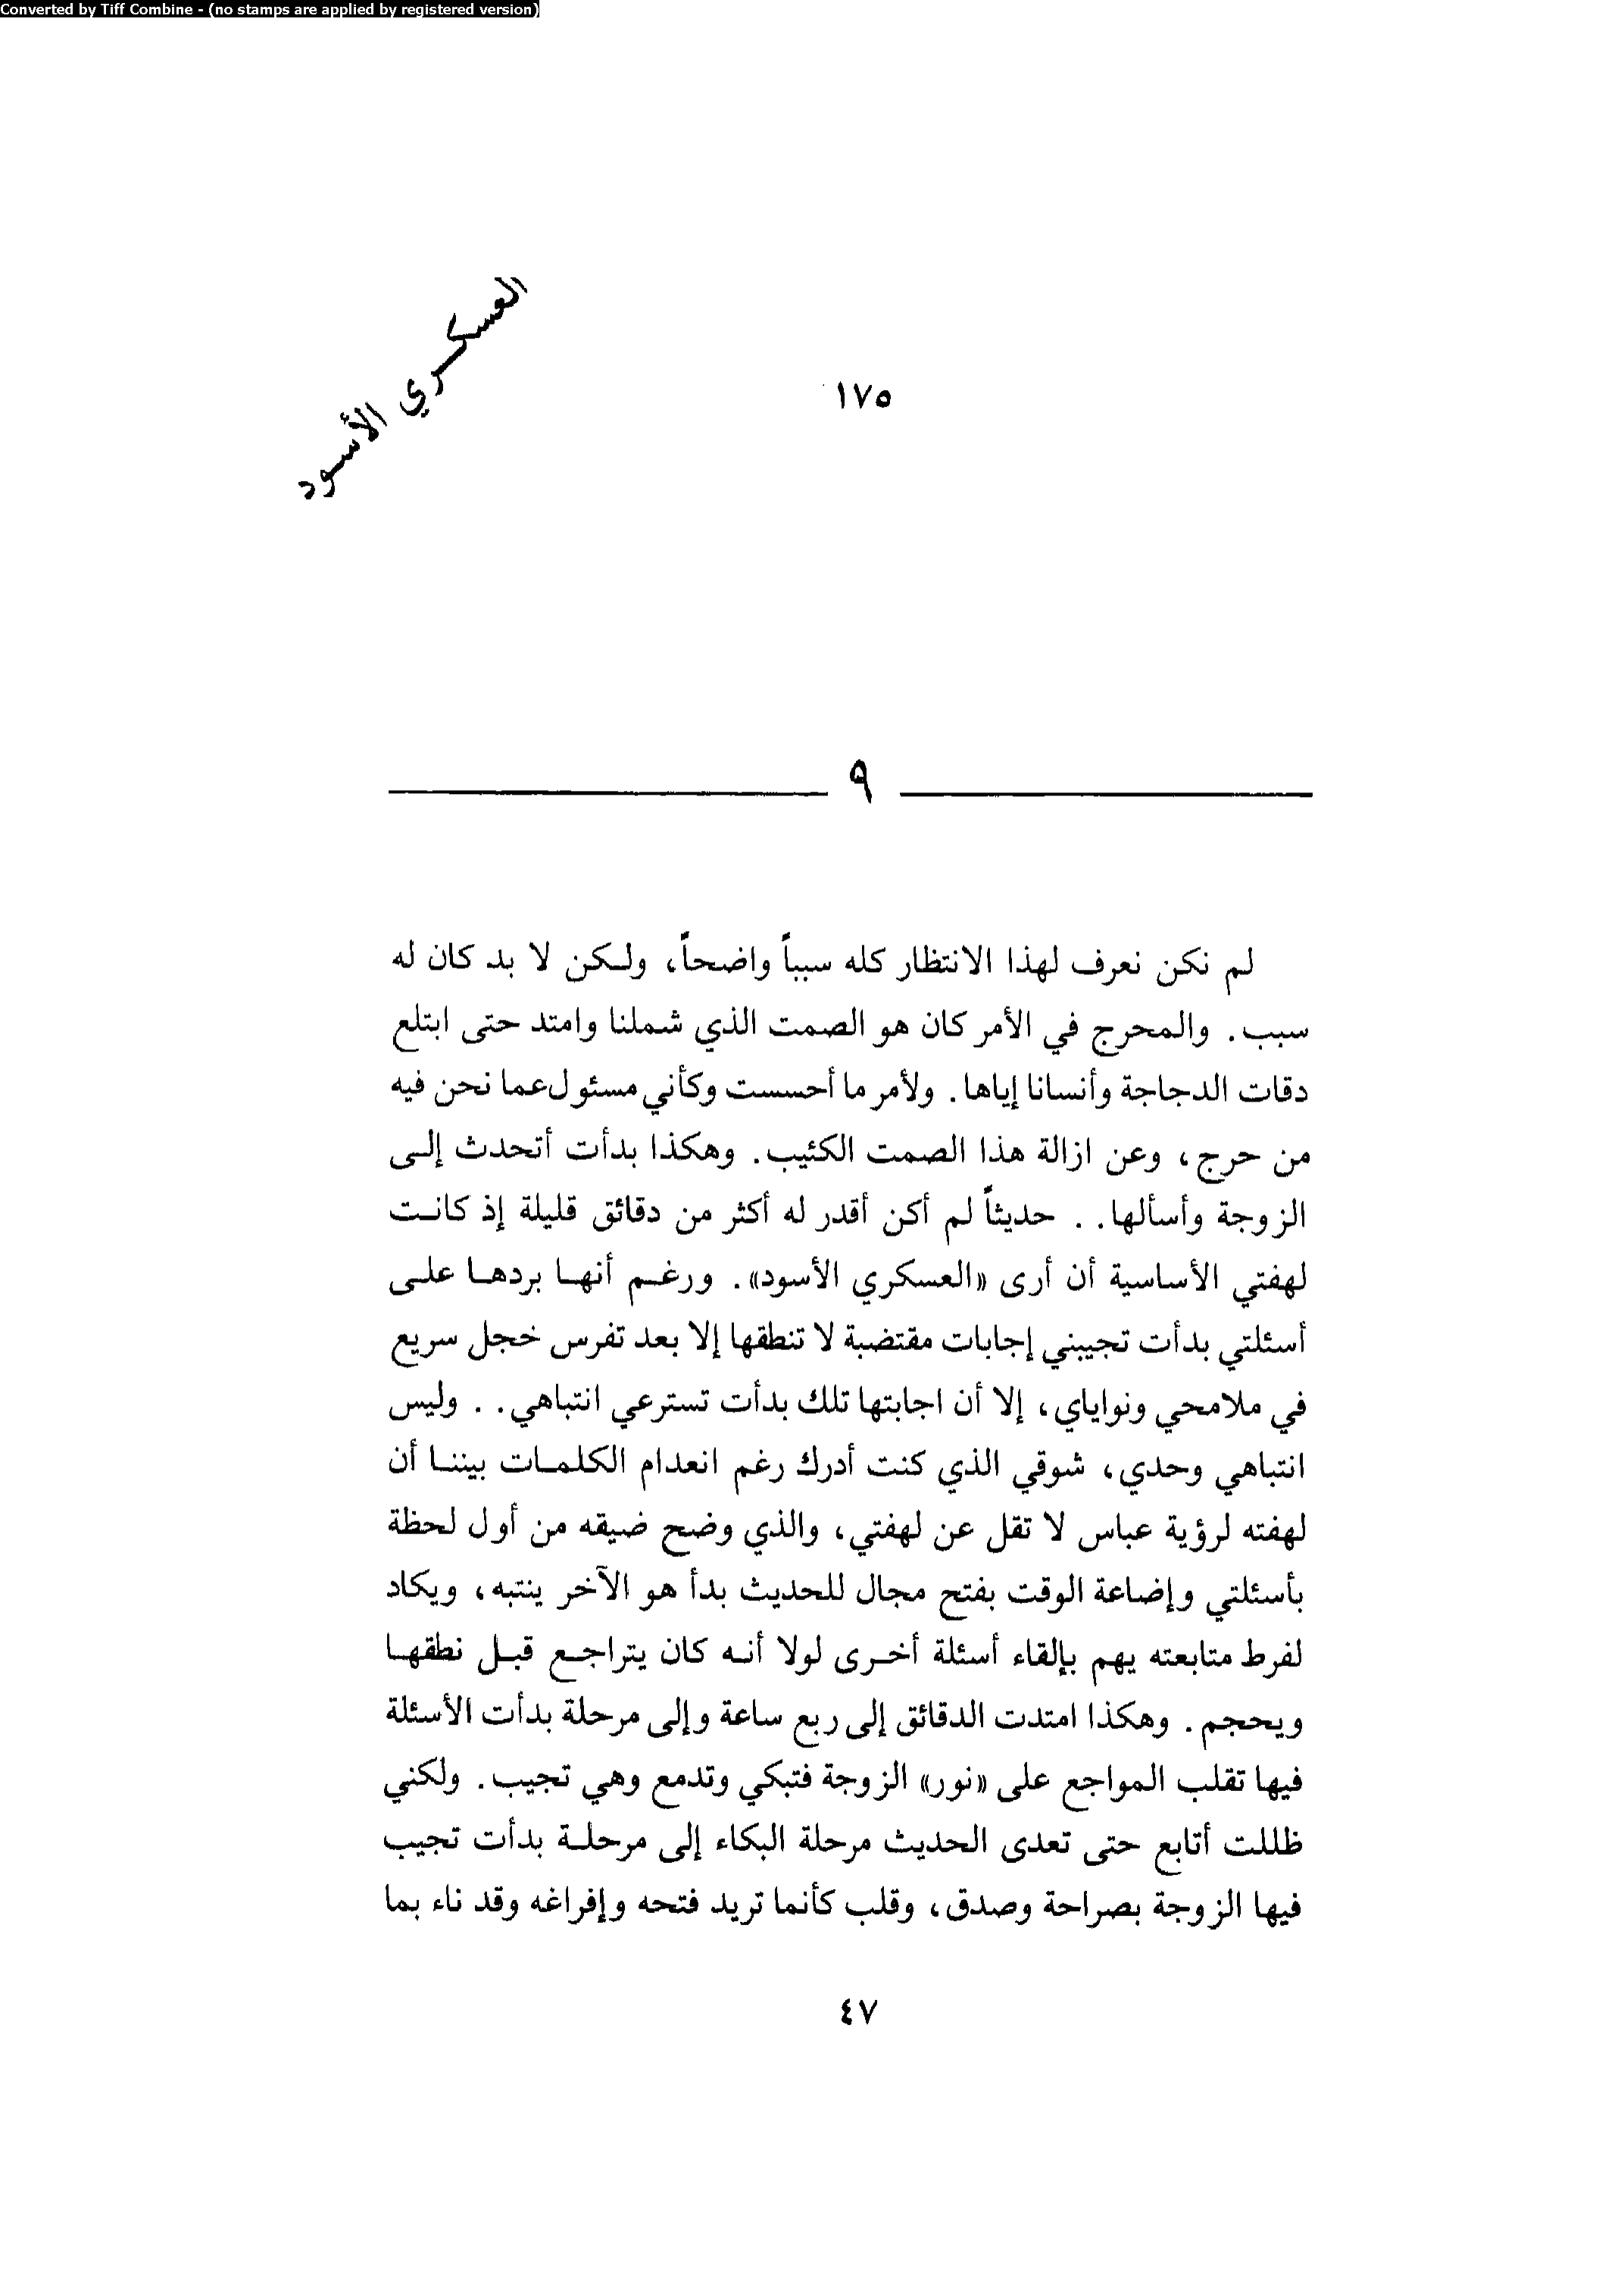 Converted by Tiff Combine - (no stamps are applied by registered version)
العسكري الأسود
١٧٥
٩
لم نكن نعرف لهذا الانتظار كله سبباً واضحاً، ولكن لا بد كان له
سبب. والمحرج في الأمر كان هو الصمت الذي شملنا وامتد حتى ابتلع
دقات الدجاجة وأنسانا إياها. ولأمر ما أحسست وكأني مسئول عما نحن فيه
من حرج، وعن ازالة هذا الصمت الكئيب. وهكذا بدأت أتحدث إلى
الزوجة وأسألها.. حديثاً لم أكن أقدر له أكثر من دقائق قليلة إذ كانت
لهفتي الأساسية أن أرى «العسكري الأسود». ورغم أنها بردها على
أسئلتي بدأت تجيبني إجابات مقتضبة لا تنطقها إلا بعد تفرس خجل سريع
في ملامحي ونواياي، إلا أن اجابتها تلك بدأت تسترعي انتباهي.. وليس
انتباهي وحدي، شوقي الذي كنت أدرك رغم انعدام الكلمات بيننا أن
لهفته لرؤية عباس لا تقل عن لهفتي، والذي وضح ضيقه من أول لحظة
بأسئلتي وإضاعة الوقت بفتح مجال للحديث بدأ هو الآخر ينتبه، ويكاد
لفرط متابعته يهم بإلقاء أسئلة أخرى لولا أنه كان يتراجع قبل نطقها
ويحجم. وهكذا امتدت الدقائق إلى ربع ساعة وإلى مرحلة بدأت الأسئلة
فيها تقلب المواجع على «نور» الزوجة فتبكي وتدمع وهي تجيب. ولكني
ظللت أتابع حتى تعدى الحديث مرحلة البكاء إلى مرحلة بدأت تجيب
فيها الزوجة بصراحة وصدق، وقلب كأنما تريد فتحه وإفراغه وقد ناء بما
٤٧